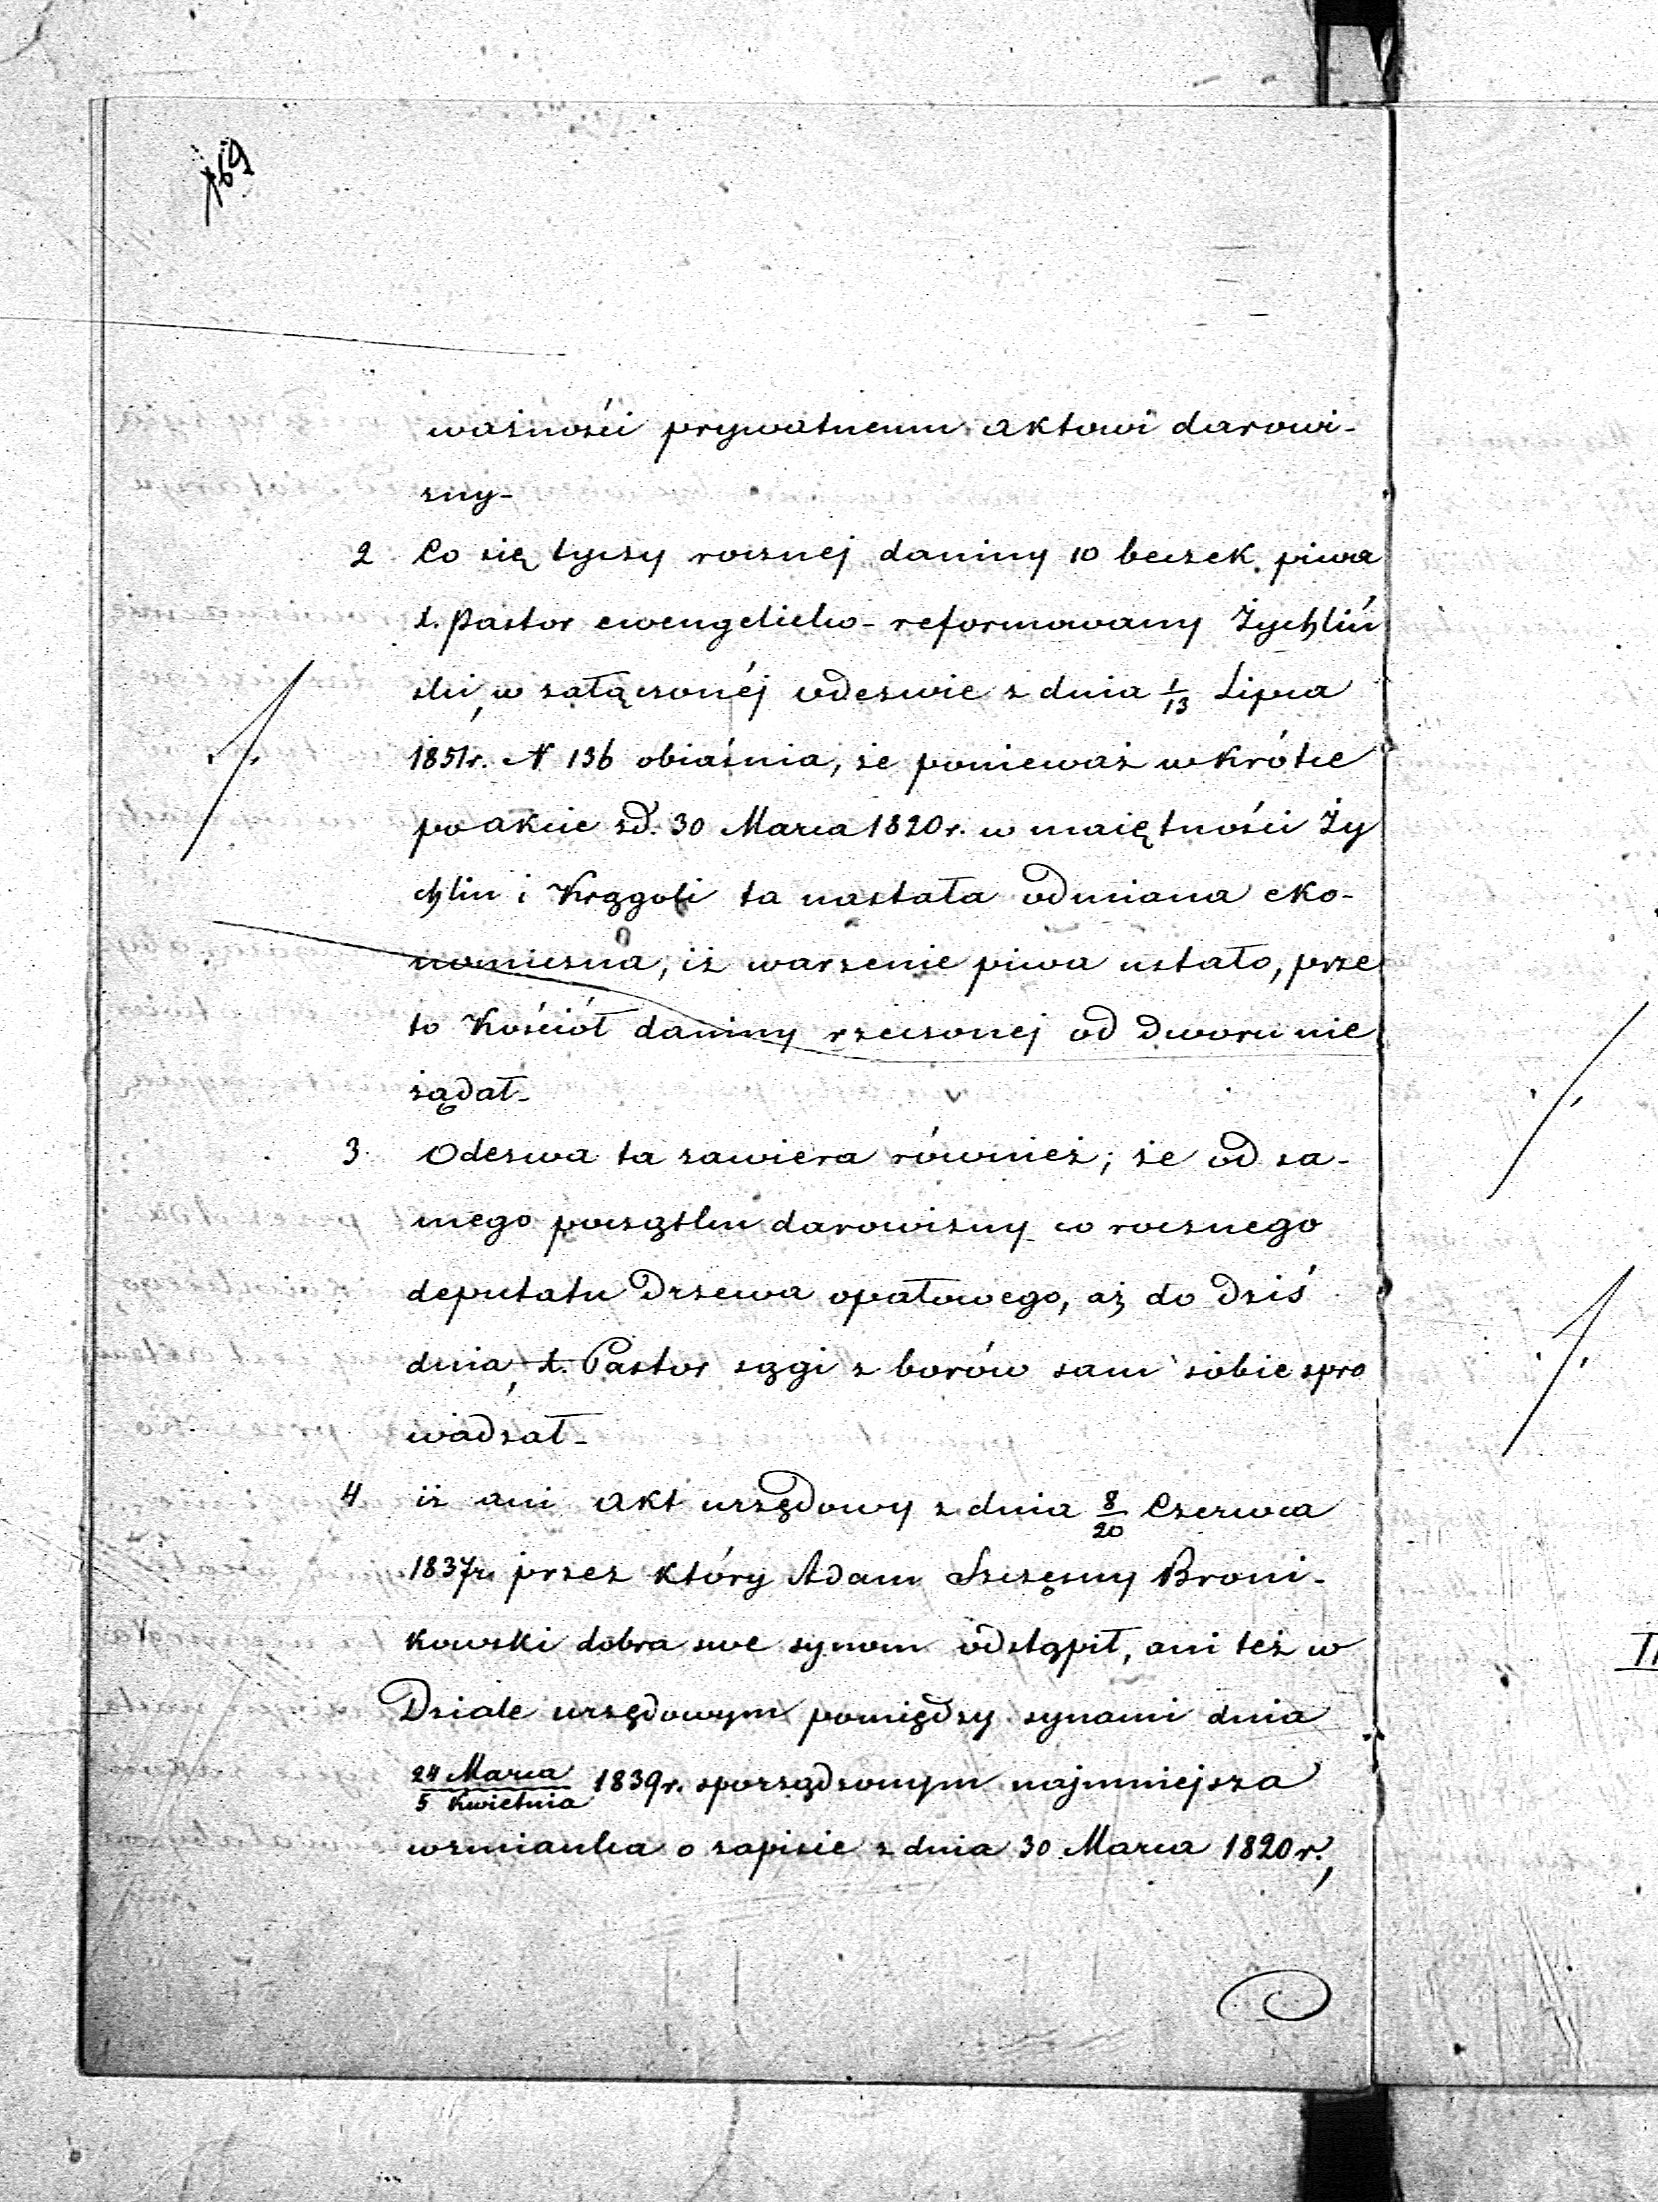 169
ważności prywatnemu aktowi darowi-
zny-
2 Co się tyczy rocznej daniny 10 beczek piwa
X. Pastor ewengelicko-reformowany Żychliń
ski, w załączonéj odezwie z dnia 1/13 Lipca
1851r. N 136 obiaśnia, że ponieważ wkrótce
po akcie zd. 30 Marca 1820r. w maiętności Ży
chlin i Krągoli ta nastała odmiana eko-
nomiczna, iż warzenie piwa ustało, prze
to Kościół daniny rzeczonej od dworu nie
żądał-
3. Odezwa ta zawiera również; że od sa-
mego początku darowizny co rocznego
deputatu drzewa opałowego, aż do dziś
dnia, X. Pastor sągi z borów sam sobie spro
wadzał-
4 iż ani akt urzędowy z dnia 8/20 Czerwca
1837r. przez który Adam Szczęsny Broni-
kowski dobra swe synom odstąpił, ani też w
Dziale urzędowym pomiędzy synami dnia
24 Marca/5 Kwietnia 1839r. sporządzonym najmniejsza
wzmianka o zapisie z dnia 30 Marca 1820 r.,
II